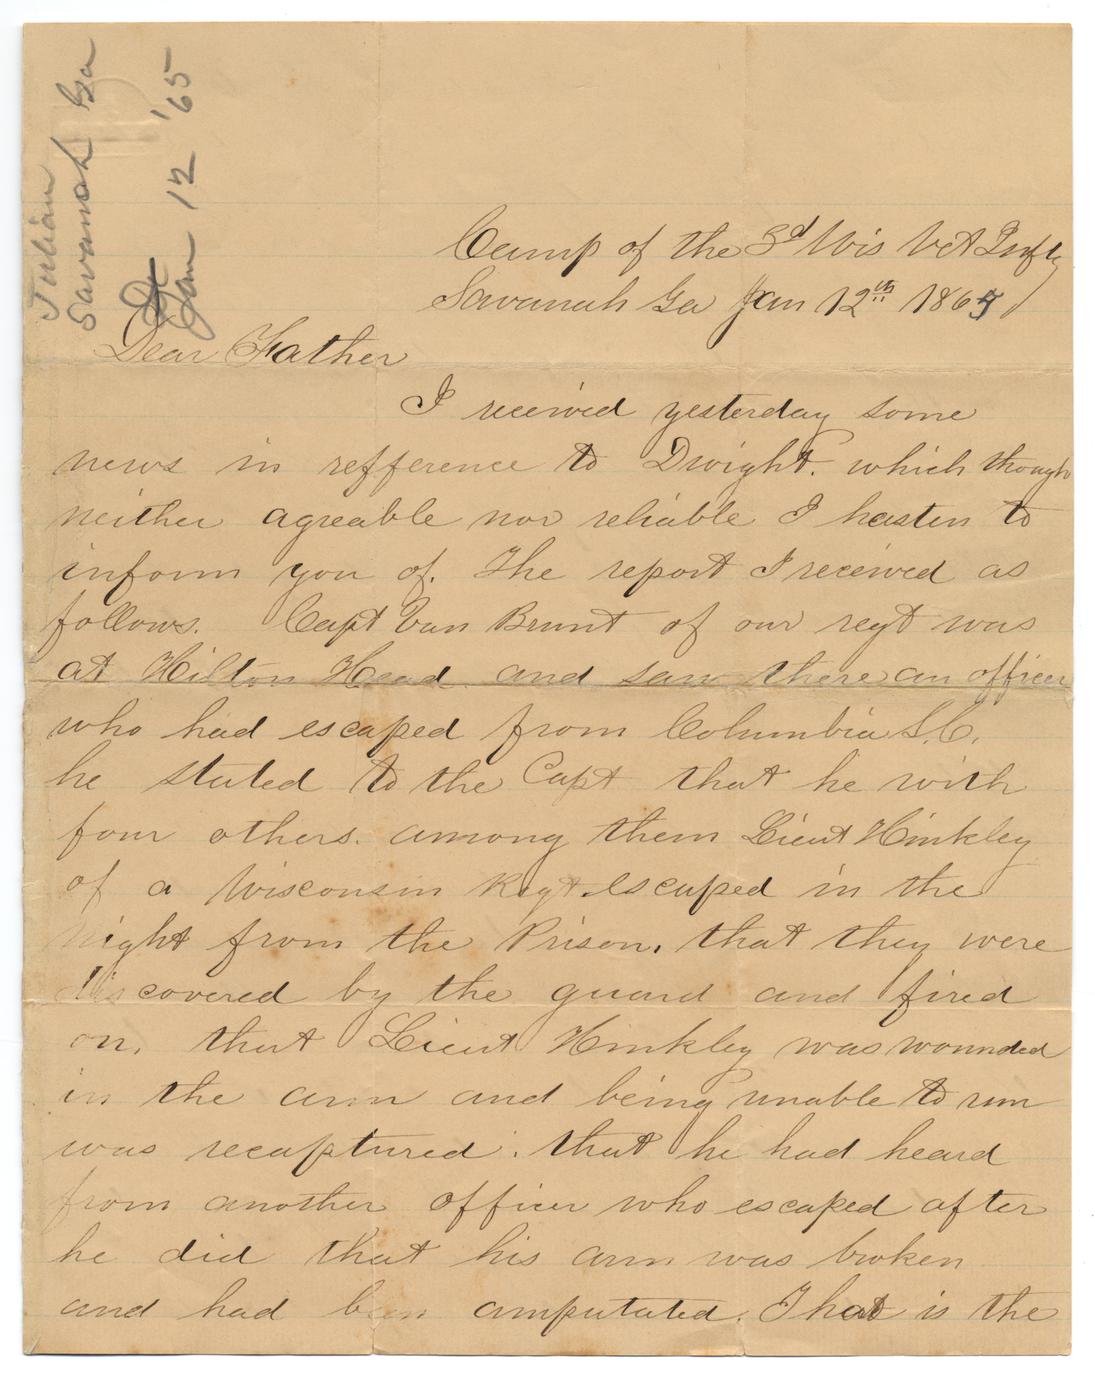 Julian
Savanah Ga
Jan 12 '65
Camp of the 3d Wis Vet Infty
Savanah Ga Jan 12th 1865
Dear Father
I received yesterday some
news in refference to Dwight. which though
neither agreable nor reliable I hasten to
inform you of. The report I received as
follows. Capt Van Brunt of our regt was
at Hilton Head and saw there an officer
who had escaped from Columbia S.C.
he stated to the Capt that he with
four others. among them Lieut Hinkley
of a Wisconsin Regt. escaped in the
night from the Prison, that they were
discovered by the guard and fired
on, that Lieut Hinkley was wounded
in the arm and being unable to run
was recaptured. that he had heard
from another officer who escaped after
he did that his arm was broken
and had been amputated. That is the